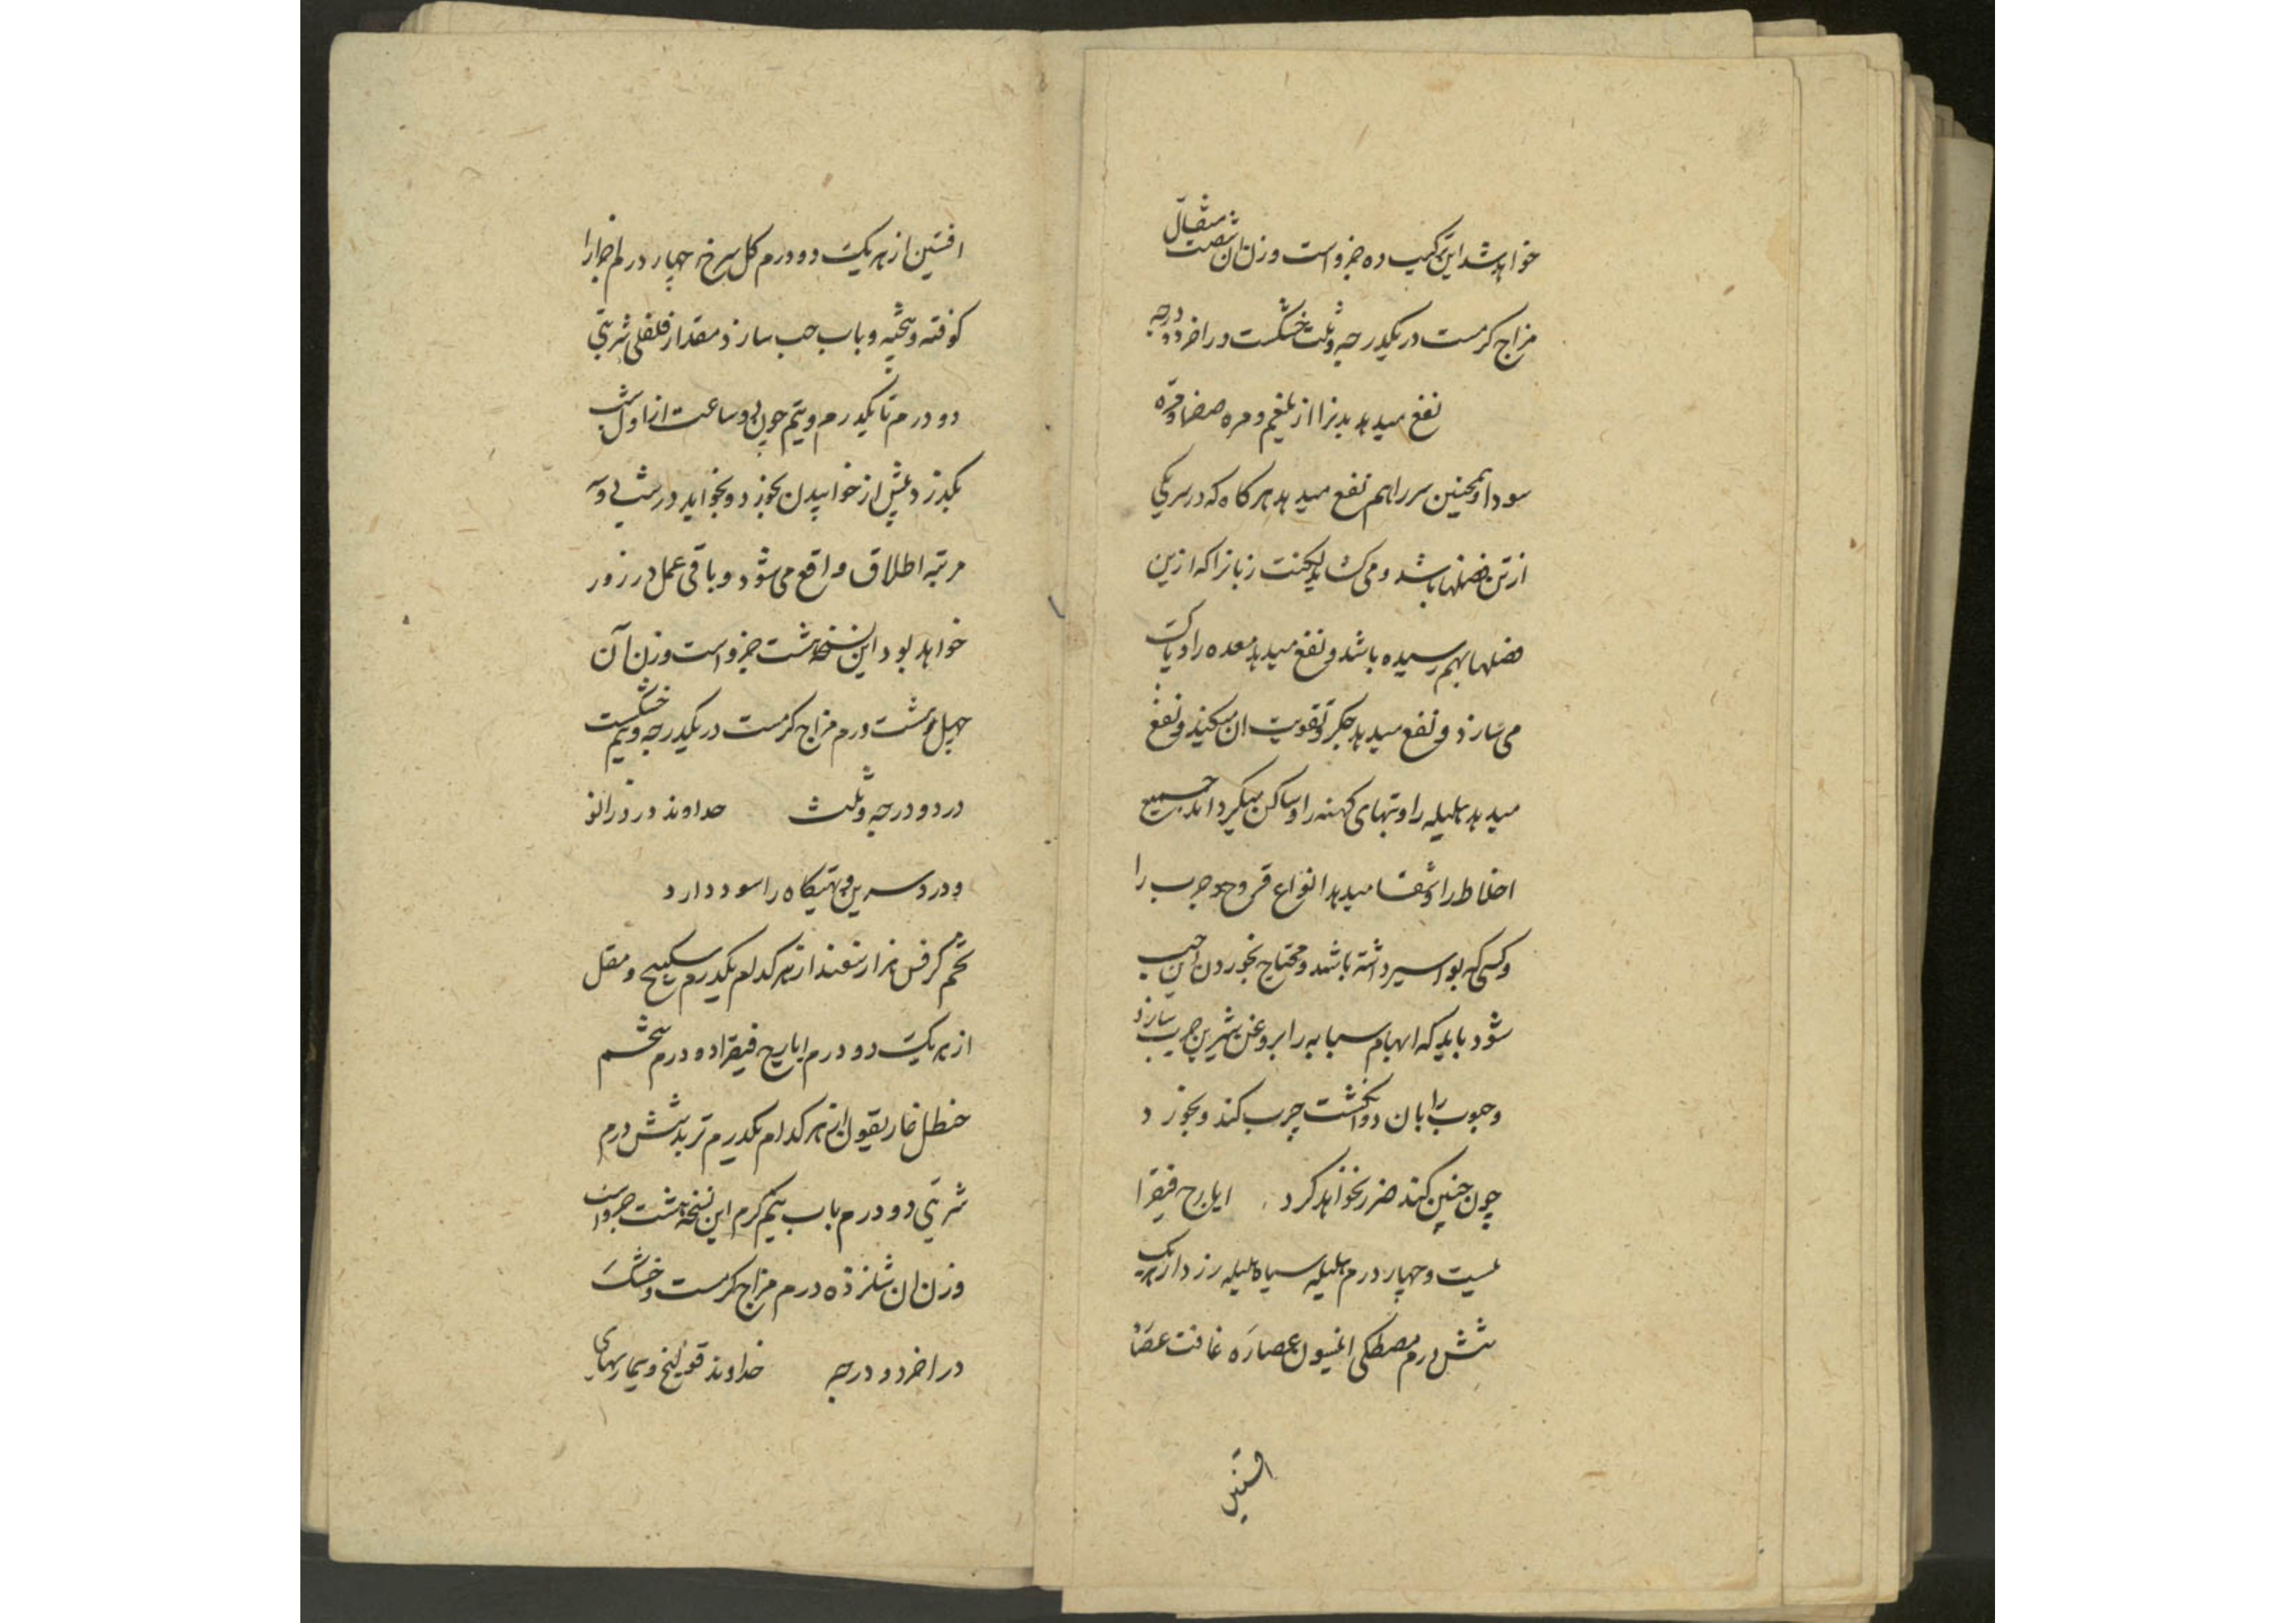 خواهد شد این ترکیب ده جزو است وزن آن شصت مثقال
مزاج گرمست در یکدرجه و ثلث خشکست در اخر دو درجه
نفع میدهد بدنرا از بلغم و مره صفرا و مره
سودا و همچنین سر را هم نفع میدهد هر کاه که در سر یکی
ازین فضلها باشد و می کشاید لکنت زبانرا که ازین
فضلها بهم رسیده باشد و نفع میدهد معده را و پاک
می سازد و نفع میدهد جکر و تقویت ان میکند و نفع
میدهد هلیله را و تبهای کهنه را و ساکن میکرداند جمیع
اخلاط را و شفا میدهد انواع قروح و جرب را
و کسی که بواسیر داشته باشد و محتاج بخوردن این حب
شود باید که ابهام سبابه را بروغن شیرین چرب سازد
و حبوب را بان دو انکشت چرب کند و بخورد
چون چنین کند ضرر نخواهد کرد ایارج فیقرا
بیست و چهار درم هلیله سیاه هلیله زرد از هر یک
شش درم مصطکی انیسون عصاره غافت عصاره
افسنتین
افسنتین از هر یک دو درم کل سرخ چهار درم اجزا را
کوفته و بیخته و باب حب سازد مقدار فلفلی شربتی
دو درم تا یکدرم و نیم چون دو ساعت از اول شب
بکذرد پیش از خوابیدن بخورد و بخوابد در شب دو سه
مرتبه اطلاق واقع می شود و باقی عمل در روز
خواهد بود این نسخه هشت جزو است وزن آن
چهل و هشت درم مزاج گرمست در یکدرجه و نیم خشکست
در دو درجه و ثلث خداوند درد زانو
و درد سرین و تهیکاه را سود دارد
تخم کرفس هزار سفند از هر کدام یکدرم سکبینج و مقل
از هر یک دو درم ایارج فیقرا ده درم شحم
حنظل غاریقون از هر کدام یکدرم تربد شش درم
شربتی دو درم باب نیم کرم این نسخه هشت جزو است
وزن ان شانزده درم مزاج گرمست و خشک
در اخر دو درجه خداوند قولنج و بیماریهای